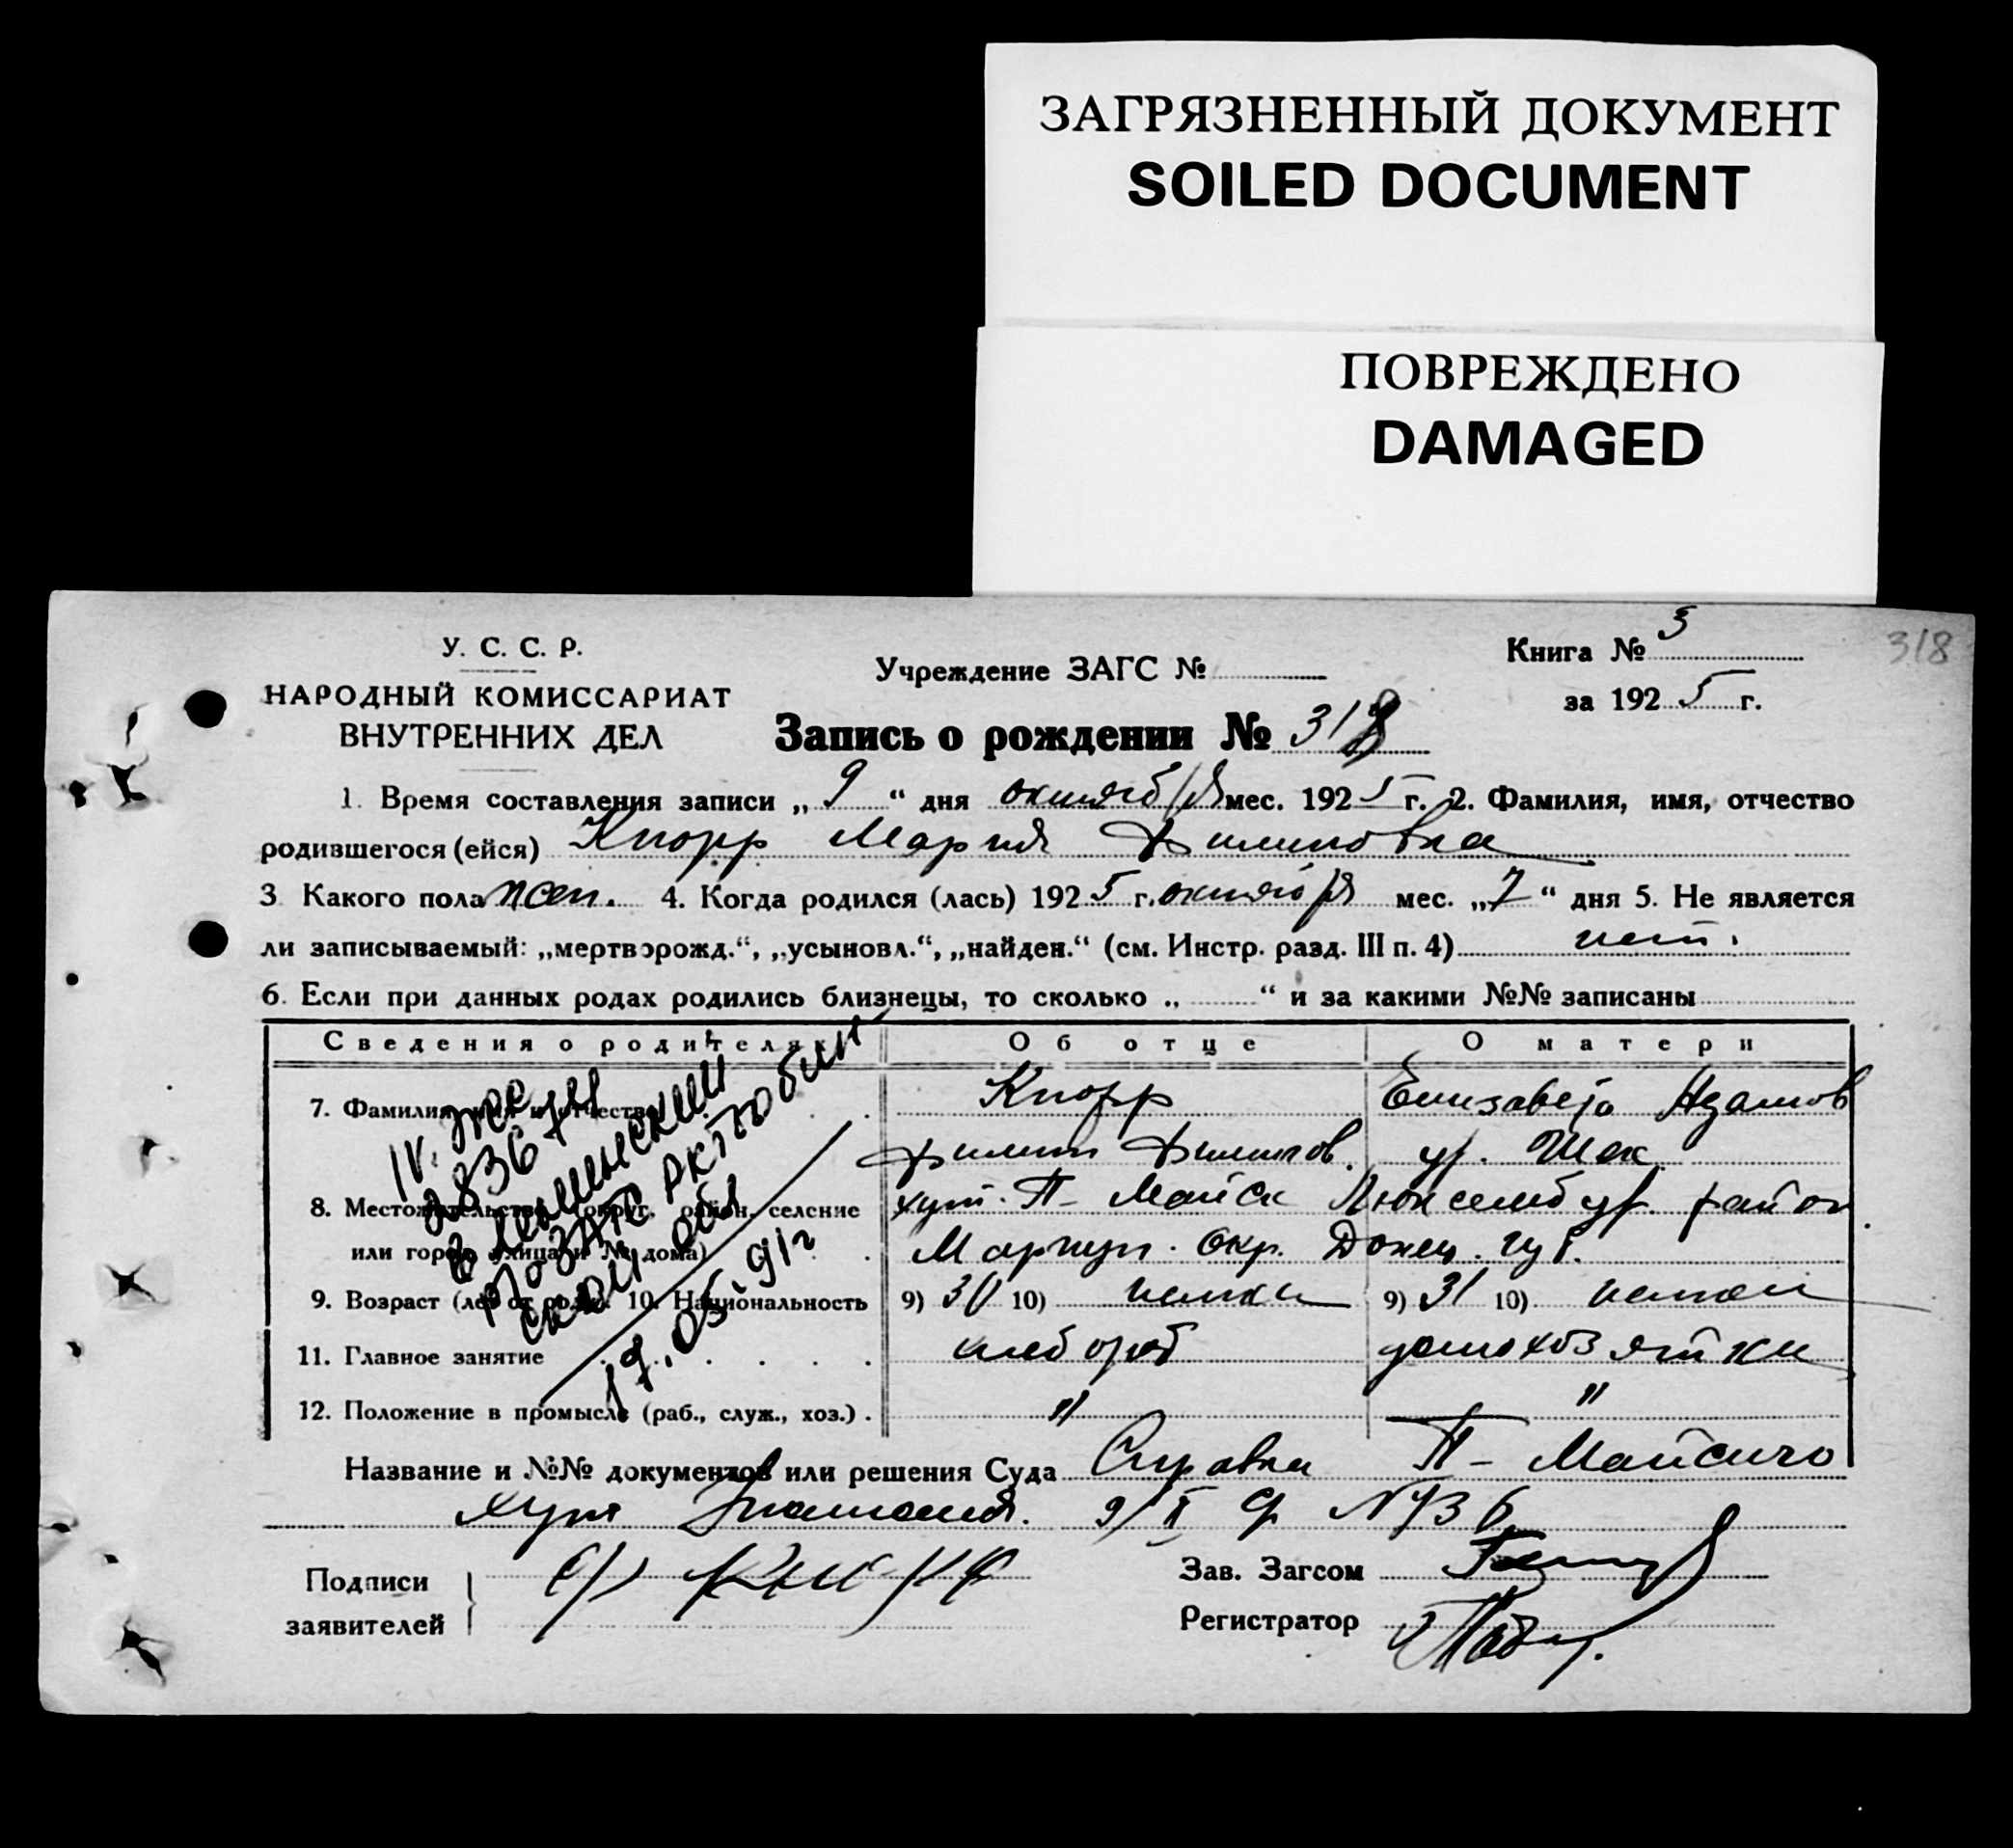 ЗАГРЯЗНЕННЫЙ ДОКУМЕНТ
SOILED DOCUMENT
ПОВРЕЖДЕНО
DAMAGED
У. С. С. Р.
НАРОДНЫЙ КОМИССАРИАТ
ВНУТРЕННИХ ДЕЛ
Учреждение ЗАГС №
Книга № 3
318
за 1925 г.
Запись о рождении № 318
1. Время составления записи „ 9 “ дня октября мес. 1925 г. 2. Фамилия, имя, отчество
родившегося (ейся) Кнорр Мария Филиповна
3. Какого пола жен. 4. Когда родился (лась) 1925 г. октября мес. „ 7 “ дня 5. Не является
ли записываемый: „мертворожд.“, „усыновл.“, „найден.“ (см. Инстр. разд. III п. 4) нет.
6. Если при данных родах родились близнецы, то сколько „ “ и за какими №№ записаны
Сведения о родителях Об отце О матери
7. Фамилия, имя и отчество Кнорр Елизавета Адамов
Филипп Филипов. ур. Шек
8. Местожительство (округ, район, селение хут. П- Майск Люксембур. район
или город, улица и № дома) Мариуп. Окр. Донец. губ.
9. Возраст (лет от рожд. 10. Национальность 9) 30 10) немец 9) 31 10) немка
11. Главное занятие хлебороб домохозяйка
12. Положение в промысле (раб., служ., хоз.) " "
17.05.91г
Название и №№ документов или решения Суда Справка П- Майского
хут 9/X № 736
Подписи
заявителей
Ф. Кнорр
Зав. Загсом
Регистратор